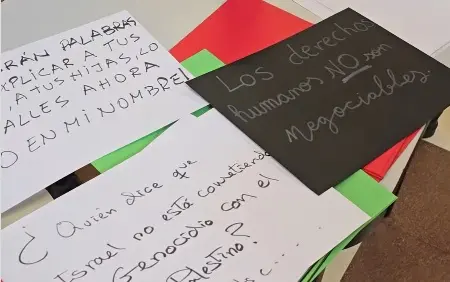 RÁN PALABRAS
XPLICAR A TUS
A TUS HIJAS, LO
ALLES AHORA
O EN MI NOMBRE!
Los derechos
humanos NO son
negociables.
¿Quién dice que
Israel no está cometiendo
Genocidio con el
Palestino?